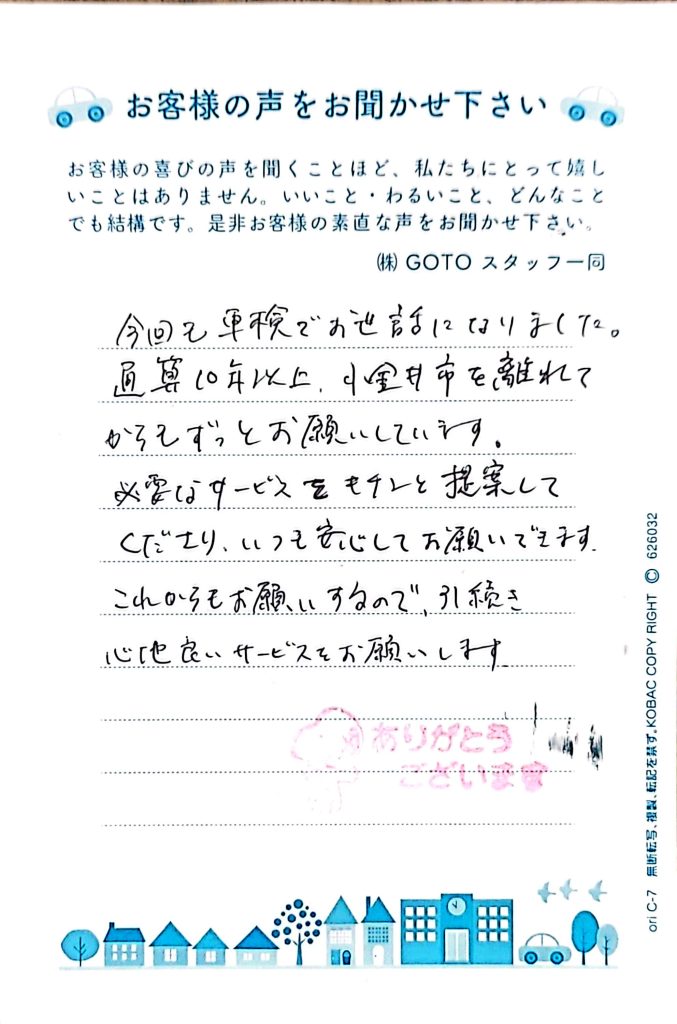 お客様の声をお聞かせ下さい
お客様の喜びの声を聞くことほど、私たちにとって嬉し
いことはありません。いいこと・わるいこと、どんなこと
でも結構です。是非お客様の素直な声をお聞かせ下さい。
㈱ GOTO スタッフ一同
今回も車検でお世話になりました。
通算10年以上、小金井市を離れて
からもずっとお願いしています。
必要なサービスをキチンと提案して
くださり、いつも安心してお願いできます。
これからもお願いするので、引続き
心地良いサービスをお願いします
ありがとう
ございます
ori C-7 無断転写、複製、転記を禁ず。KOBAC COPY RIGHT © 626032